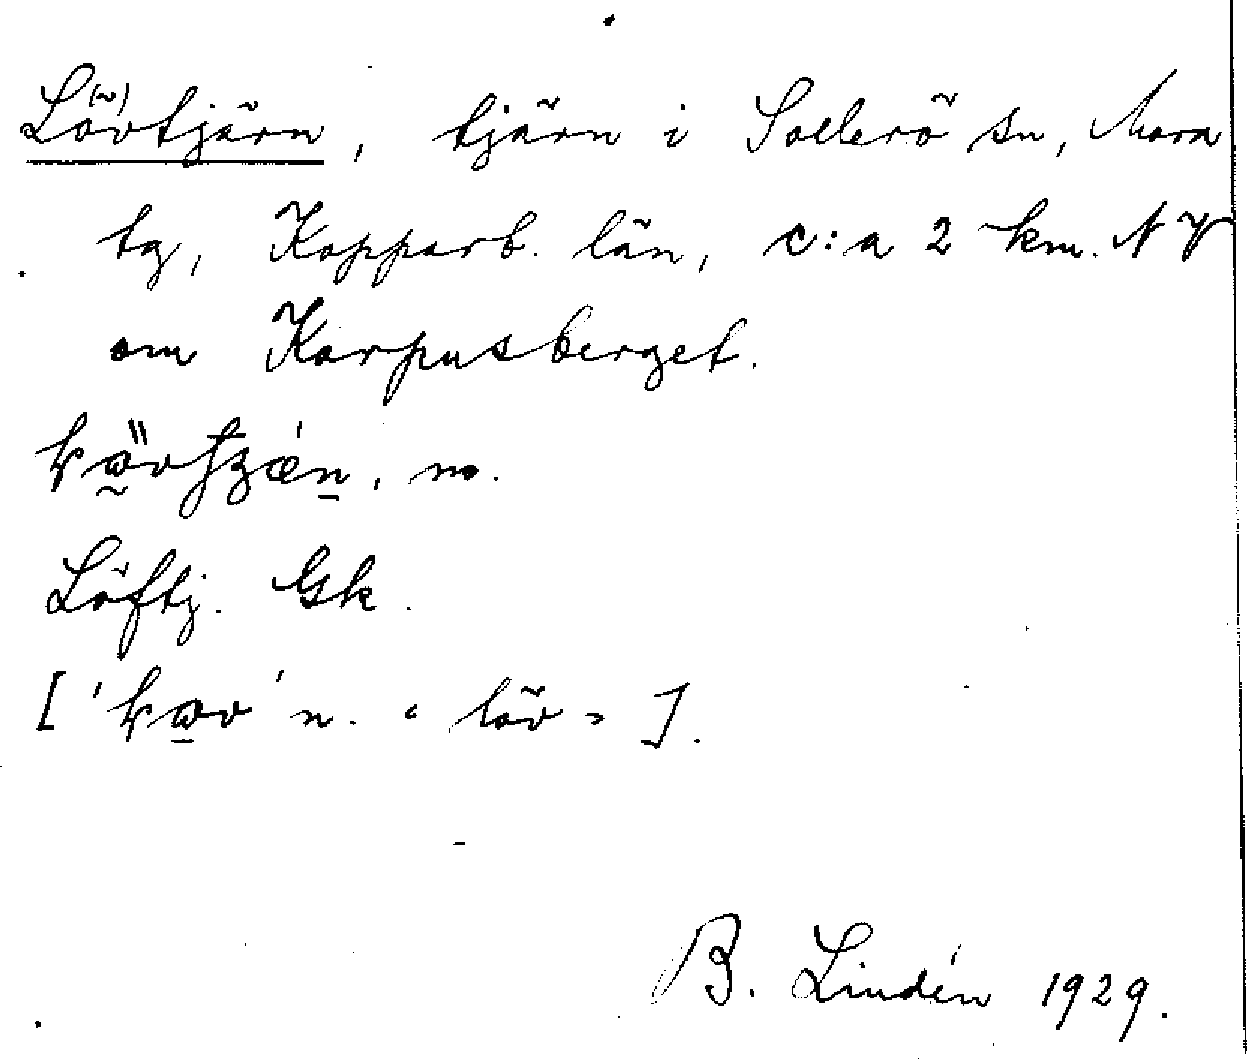 Lövtjärn, tjärn i Sollerö sn, Mora
tg, Kopparb. län, c:a 2 km. NV
om Karpusberget.
m.
Löftj. Gk.
n. "löv"].
B. Lindén 1929.